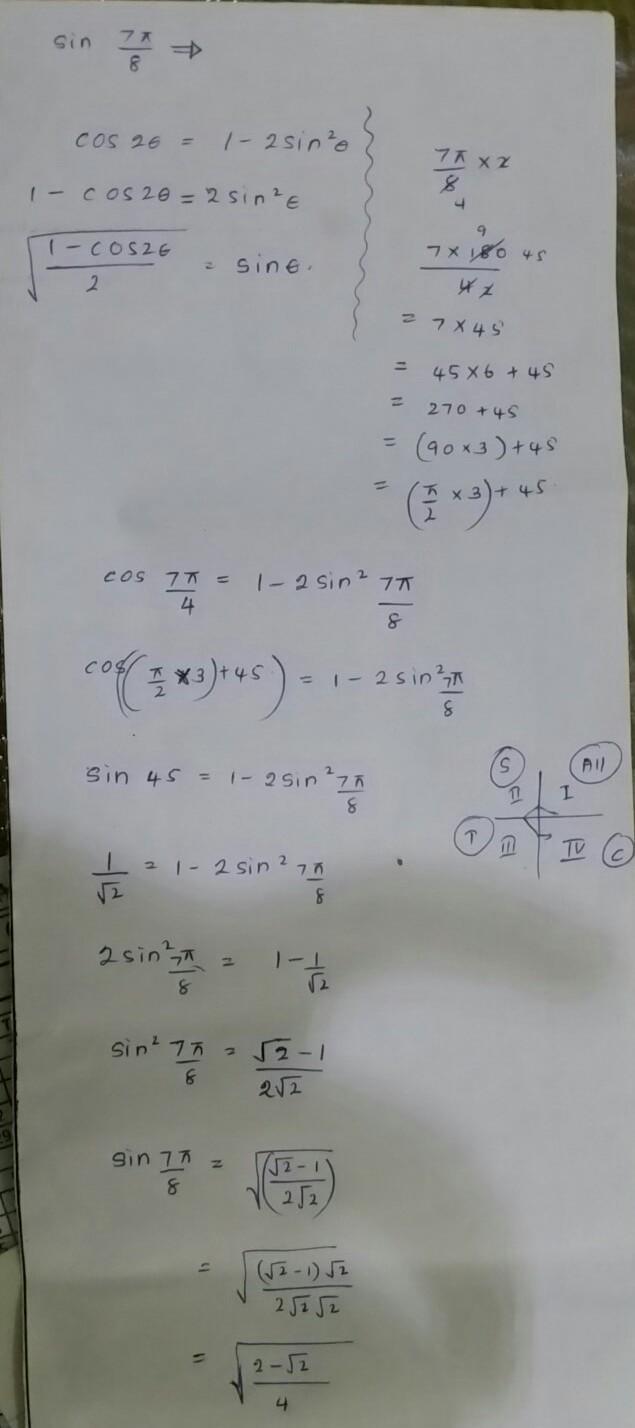 sin 7π/8 ⇒
cos 2θ = 1 - 2sin²θ
1 - cos2θ = 2sin²θ
√((1-cos2θ)/2) = sinθ.
7π/8 × 2
4
9
7 × 180 45
4 2
= 7 × 45
= 45×6 + 45
= 270 + 45
= (90 × 3) + 45
= (π/2 × 3) + 45
cos 7π/4 = 1 - 2 sin² 7π/8
cos((π/2 × 3) + 45) = 1 - 2 sin² 7π/8
sin 45 = 1 - 2sin² 7π/8
S All
II I
T III IV C
1/√2 = 1 - 2 sin² 7π/8
2sin² 7π/8 = 1 - 1/√2
sin² 7π/8 = (√2 - 1)/(2√2)
sin 7π/8 = √((√2 - 1)/(2√2))
= √(((√2 - 1)√2)/(2√2√2))
= √((2 - √2)/4)